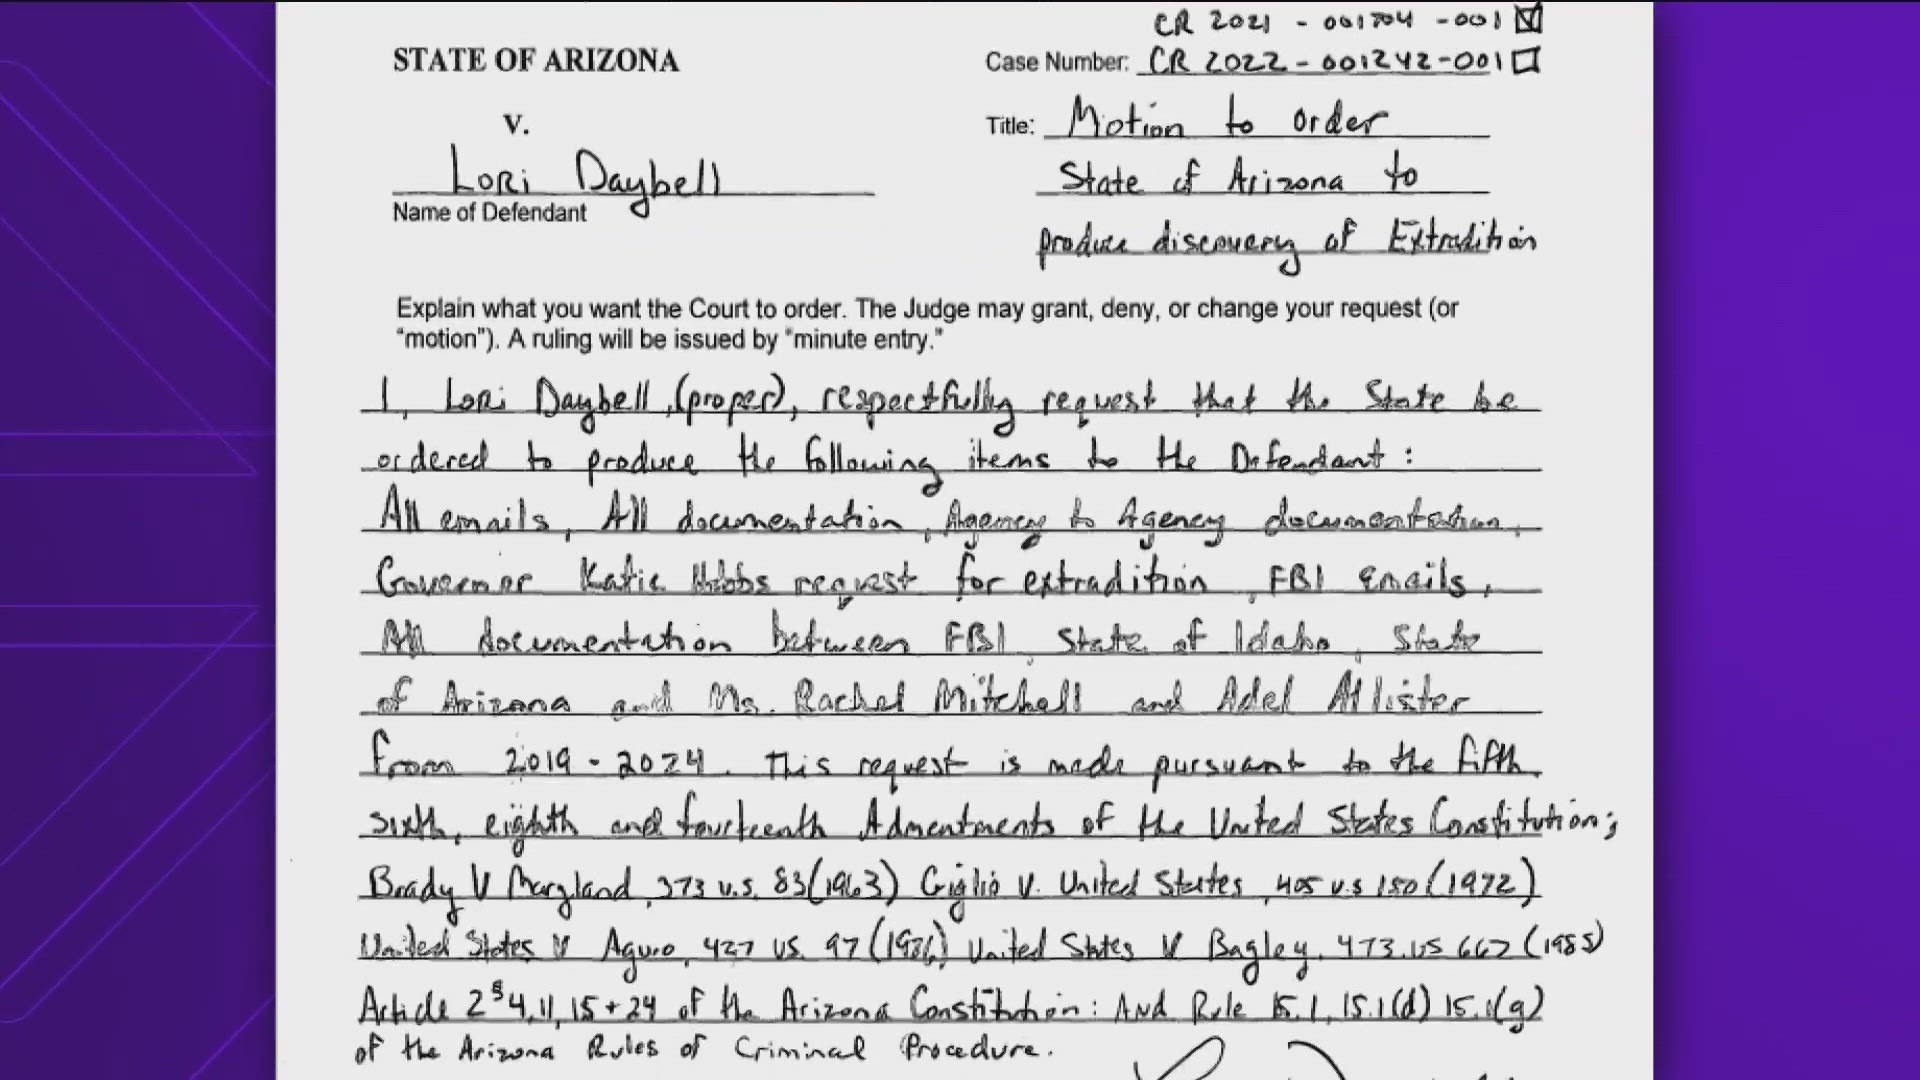 CR 2021 - 001704 - 001
STATE OF ARIZONA
Case Number: CR 2022 - 001242-001
V.
Title: Motion to order
Lori Daybell
State of Arizona to
Name of Defendant
produce discovery of Extradition
Explain what you want the Court to order. The Judge may grant, deny, or change your request (or
"motion"). A ruling will be issued by "minute entry."
I, Lori Daybell, (proper), respectfully request that the State be
ordered to produce the following items to the Defendant:
All emails, All documentation, Agency to Agency documentation,
Governor Katie Hobbs request for extradition, FBI emails,
All documentation between FBI, State of Idaho, State
of Arizona and Ms. Rachel Mitchell and Adel Allister
from 2019 - 2024. This request is made pursuant to the fifth,
sixth, eighth and fourteenth Admentments of the United States Constitution;
Brady V Maryland, 373 U.S. 83 (1963) Giglio V. United States, 405 U.S 150 (1972)
United States V Aguro, 427 US. 97 United States V Bagley, 473. US 667 (1985)
Article 2 § 4, 11, 15 + 24 of the Arizona Constitution: And Rule 15.1, 15.1(d) 15.1(g)
of the Arizona Rules of Criminal Procedure.